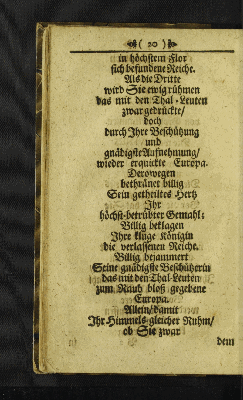 ( 20 )
in höchstem Flor
sich befundene Reiche.
Als die Dritte
wird Sie ewig rühmen
das mit den Thal-Leuten
zwar gedrückte/
doch
durch Ihre Beschützung
und
gnädigste Aufnehmung/
wieder erquickte Europa.
Derowegen
bethränet billig
Sein getheiltes Hertz
Ihr
höchst-betrübter Gemahl:
Billig beklagen
Ihre kluge Königin
die verlassenen Reiche.
Billig bejammert
Seine gnädigste Beschützerin
das mit den Thal-Leuten
zum Raub bloß gegebene
Europa.
Allein/ damit
Ihr Himmels-gleicher Ruhm/
ob Sie zwar
dem